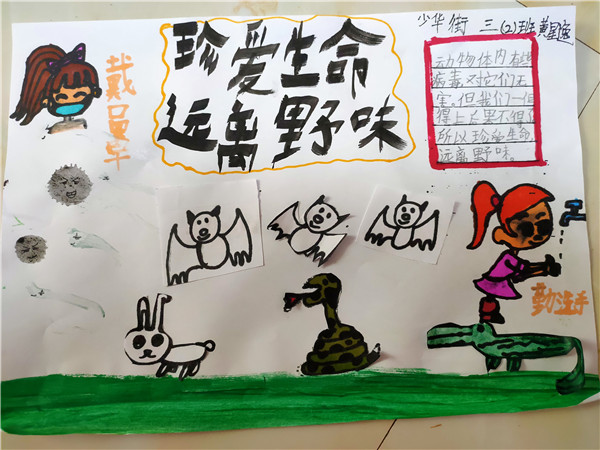 少华街 三(2)班 黄星
珍爱生命
远离野味
动物体内有些
病毒对它们无
害,但我们一但
得上后果不
所以珍爱生命
远离野味。
戴口罩
勤洗手